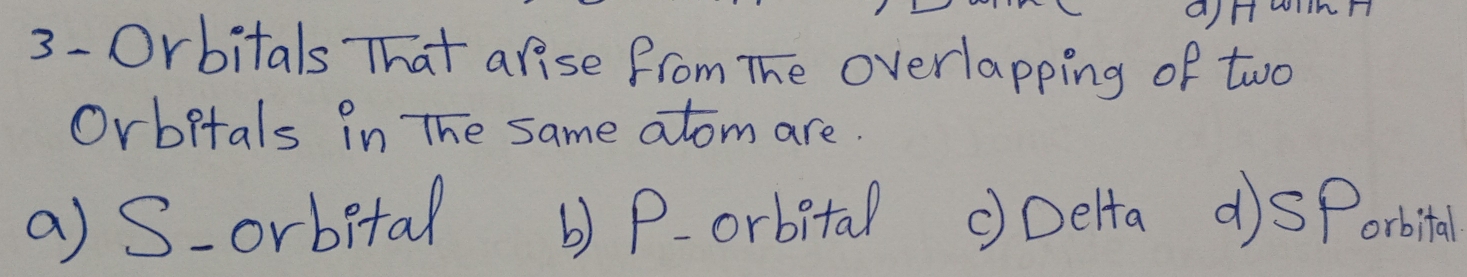 d) H with H
3- Orbitals That arise from The overlapping of two
Orbitals in The same atom are.
a) S-orbital b) P-orbital c) Delta d) SP orbital.